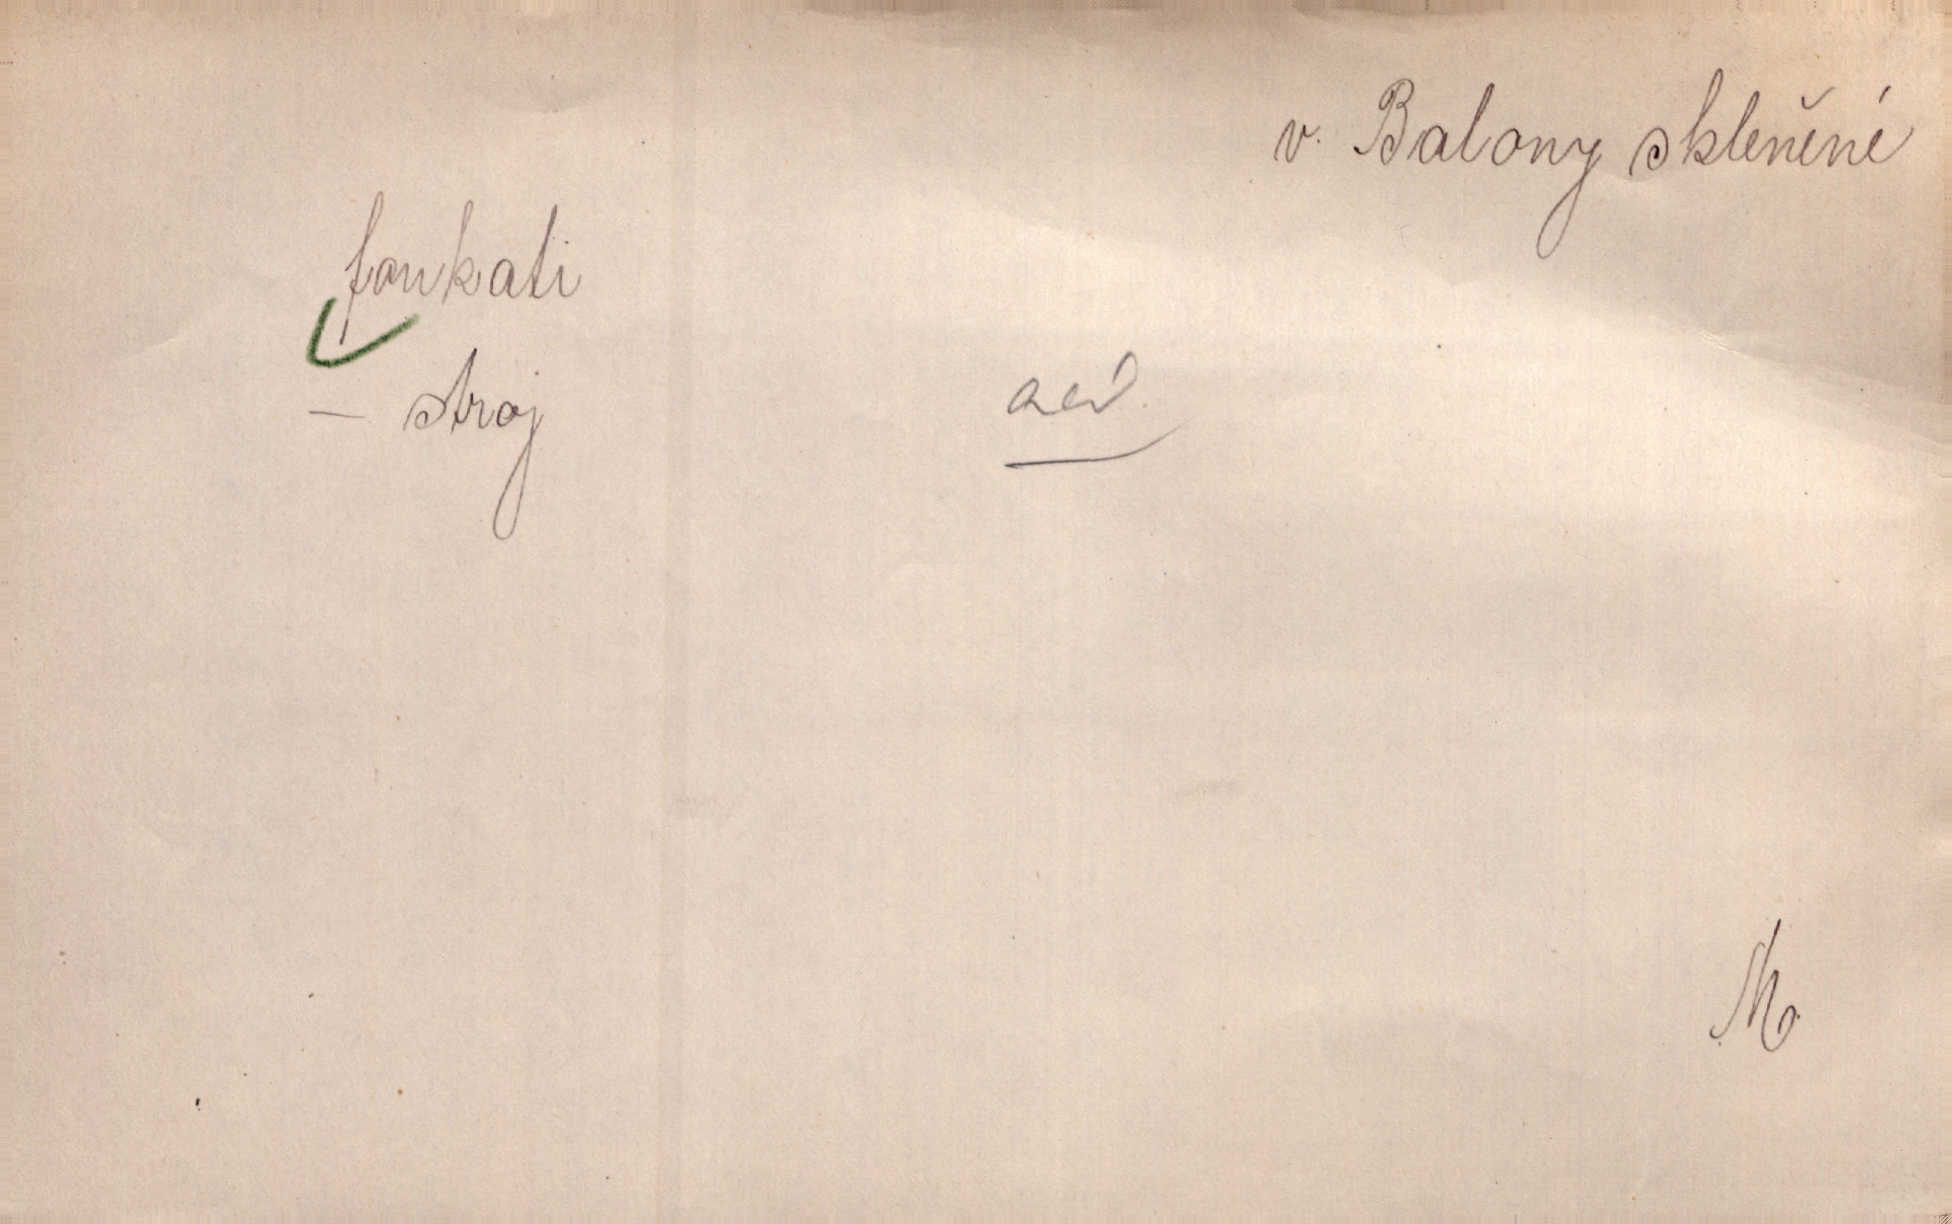 v. Balony skleněné
foukati
— stroj
M